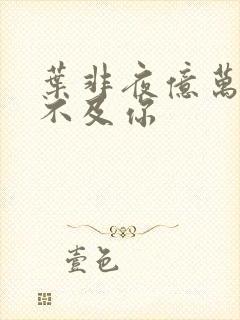 葉非夜億萬
不及你
壹色